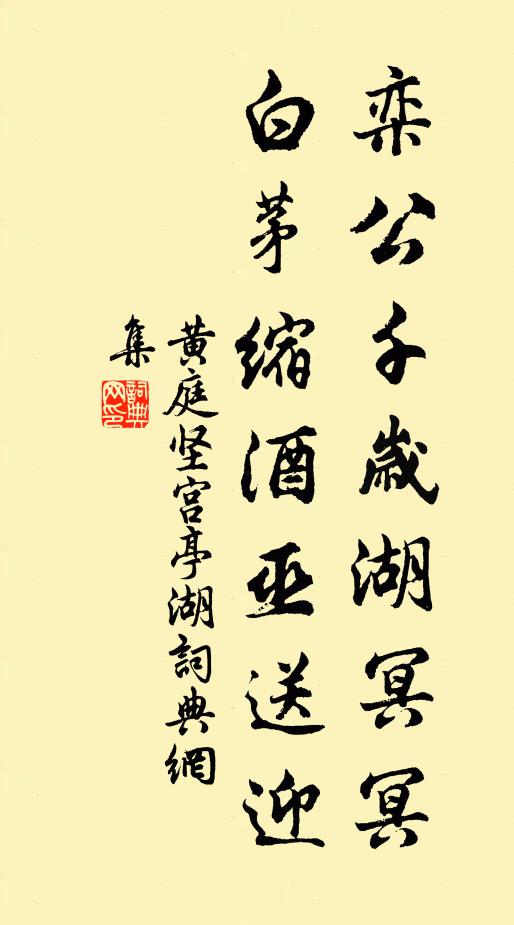 栾公千歲湖冥冥
白茅縮酒巫送迎
黄庭坚宫亭湖詞典網
集
詞典
网印